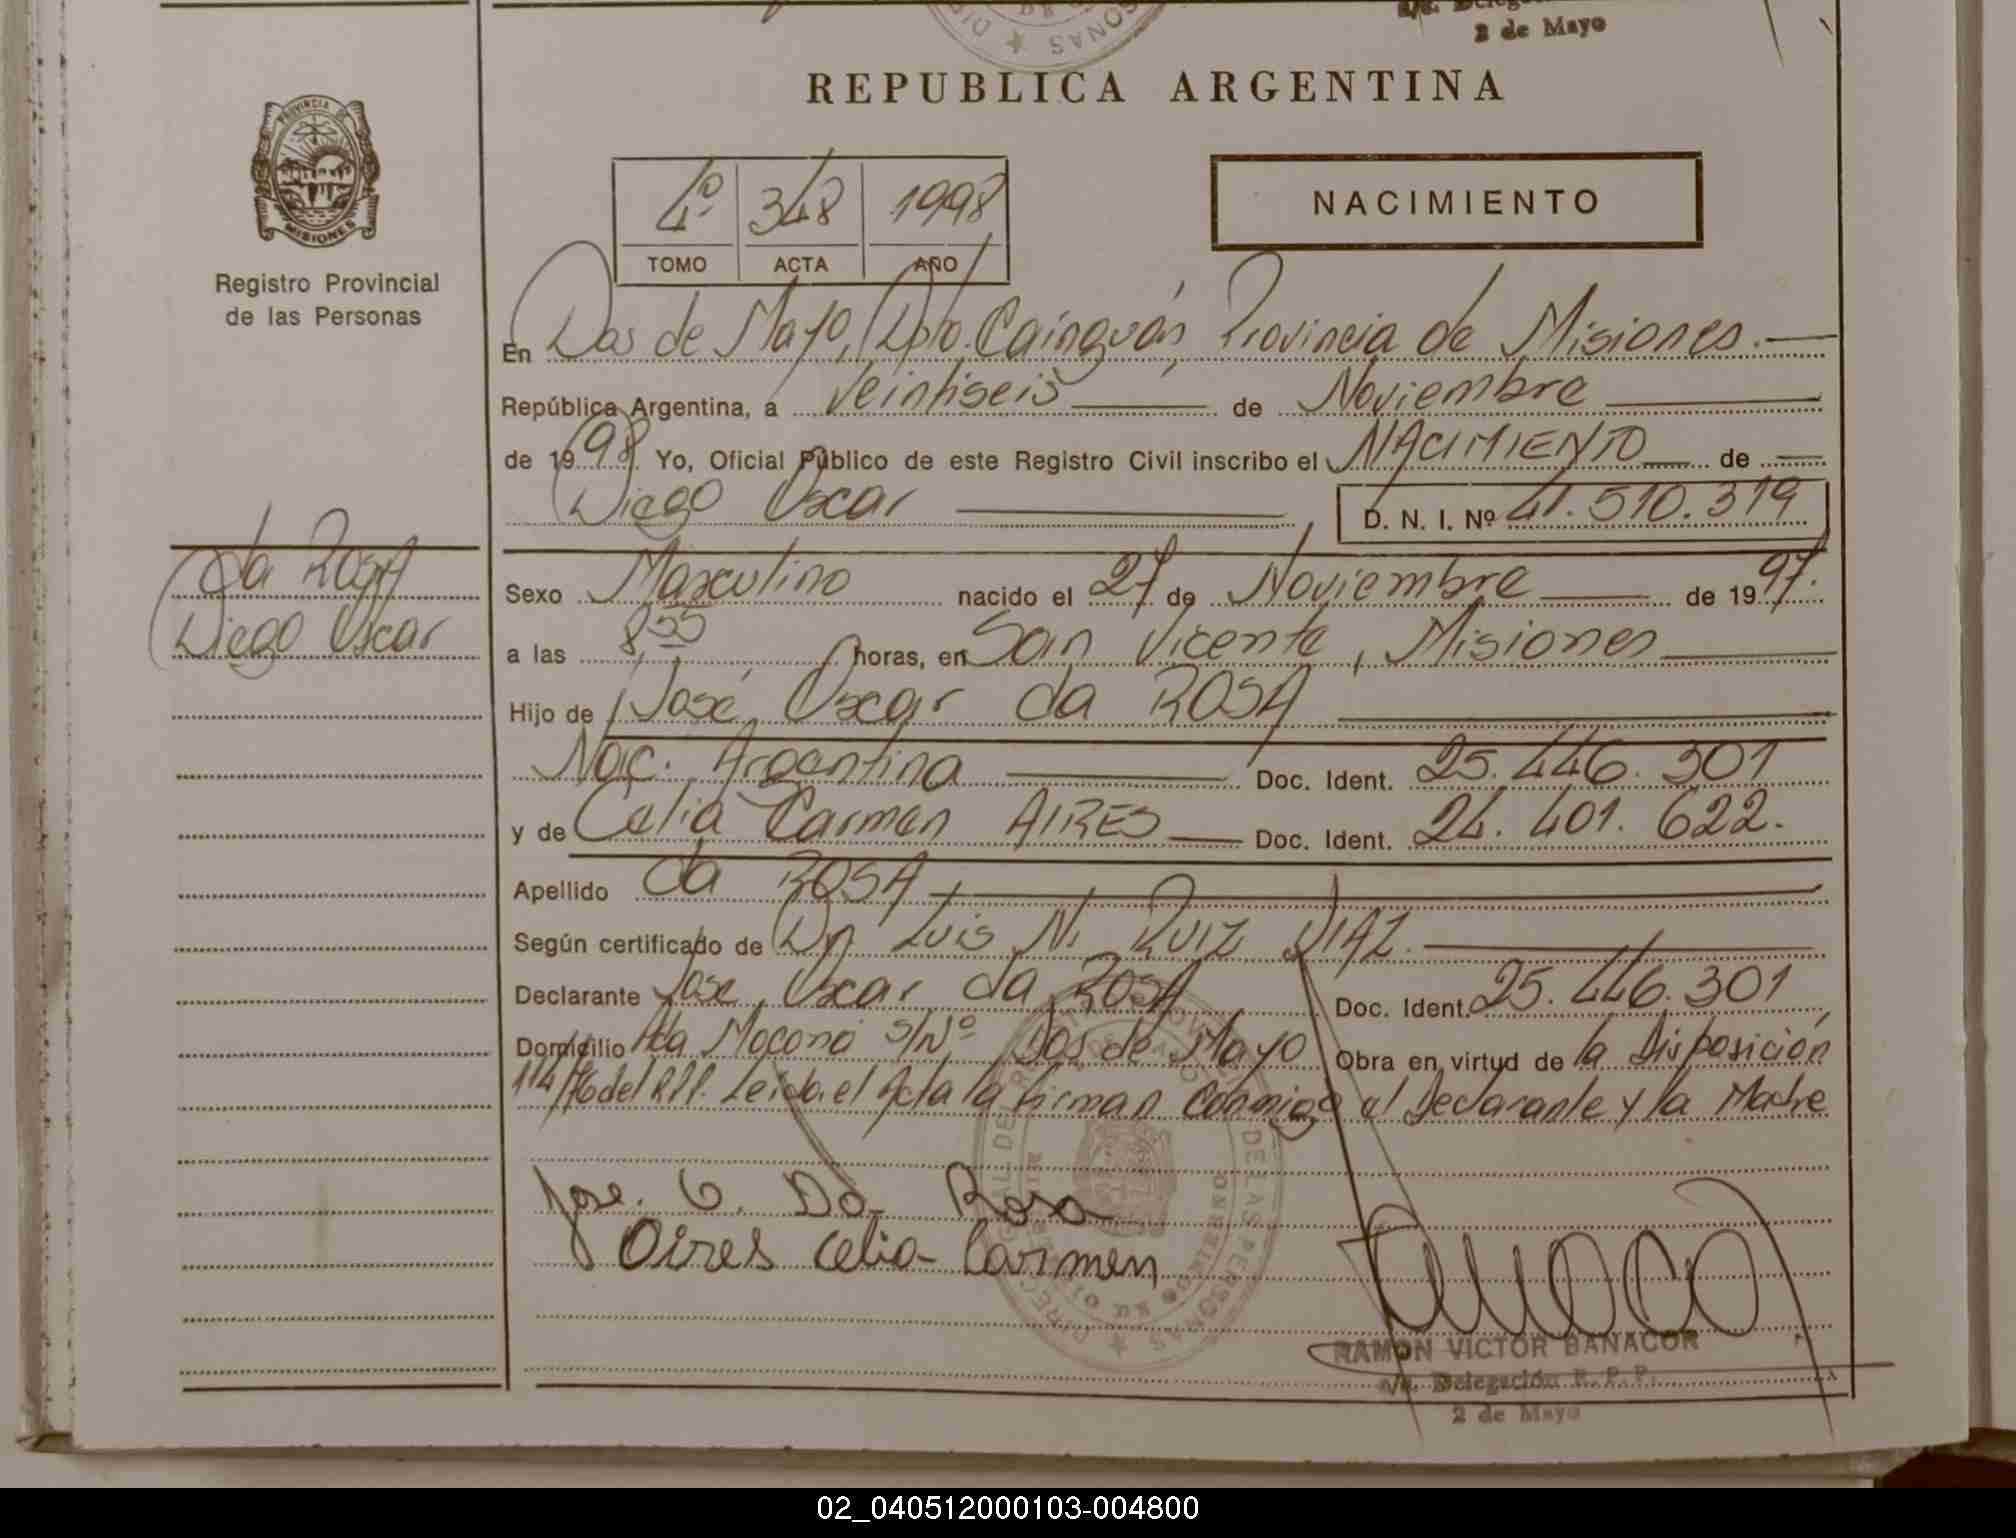 a/c. Deleg
2 de Mayo
REPUBLICA ARGENTINA
PROVINCIA DE
MISIONES
Registro Provincial
de las Personas
4º 348 1998
TOMO ACTA AÑO
NACIMIENTO
En Dos de Mayo, Dpto. Cainguás, Provincia de Misiones.
República Argentina, a Veintiseis de Noviembre
de 1998. Yo, Oficial Público de este Registro Civil inscribo el NACIMIENTO de
Diego Oscar, D. N. I. Nº 41.510.319
da ROSA
Diego Oscar
Sexo Masculino nacido el 27 de Noviembre de 1997.
a las 8,55 horas, en San Vicente, Misiones
Hijo de José Oscar da ROSA
Nac. Argentina Doc. Ident. 25.446.301
y de Celia Carmen AIRES Doc. Ident. 24.401.622.
Apellido da ROSA
Según certificado de Dn. Luis N. RUIZ DIAZ.
Declarante José Oscar da ROSA Doc. Ident. 25.446.301
Domicilio Avda Moconá S/Nº Dos de Mayo Obra en virtud de la Disposición
114/76 del R.P.P. Leida el Acta la firman conmigo el Declarante y la Madre
Jose. O. Da Rosa
Aires Celia Carmen
RAMON VICTOR BANACOR
a/c. Delegación R.P.P.
2 de Mayo
02_040512000103-004800